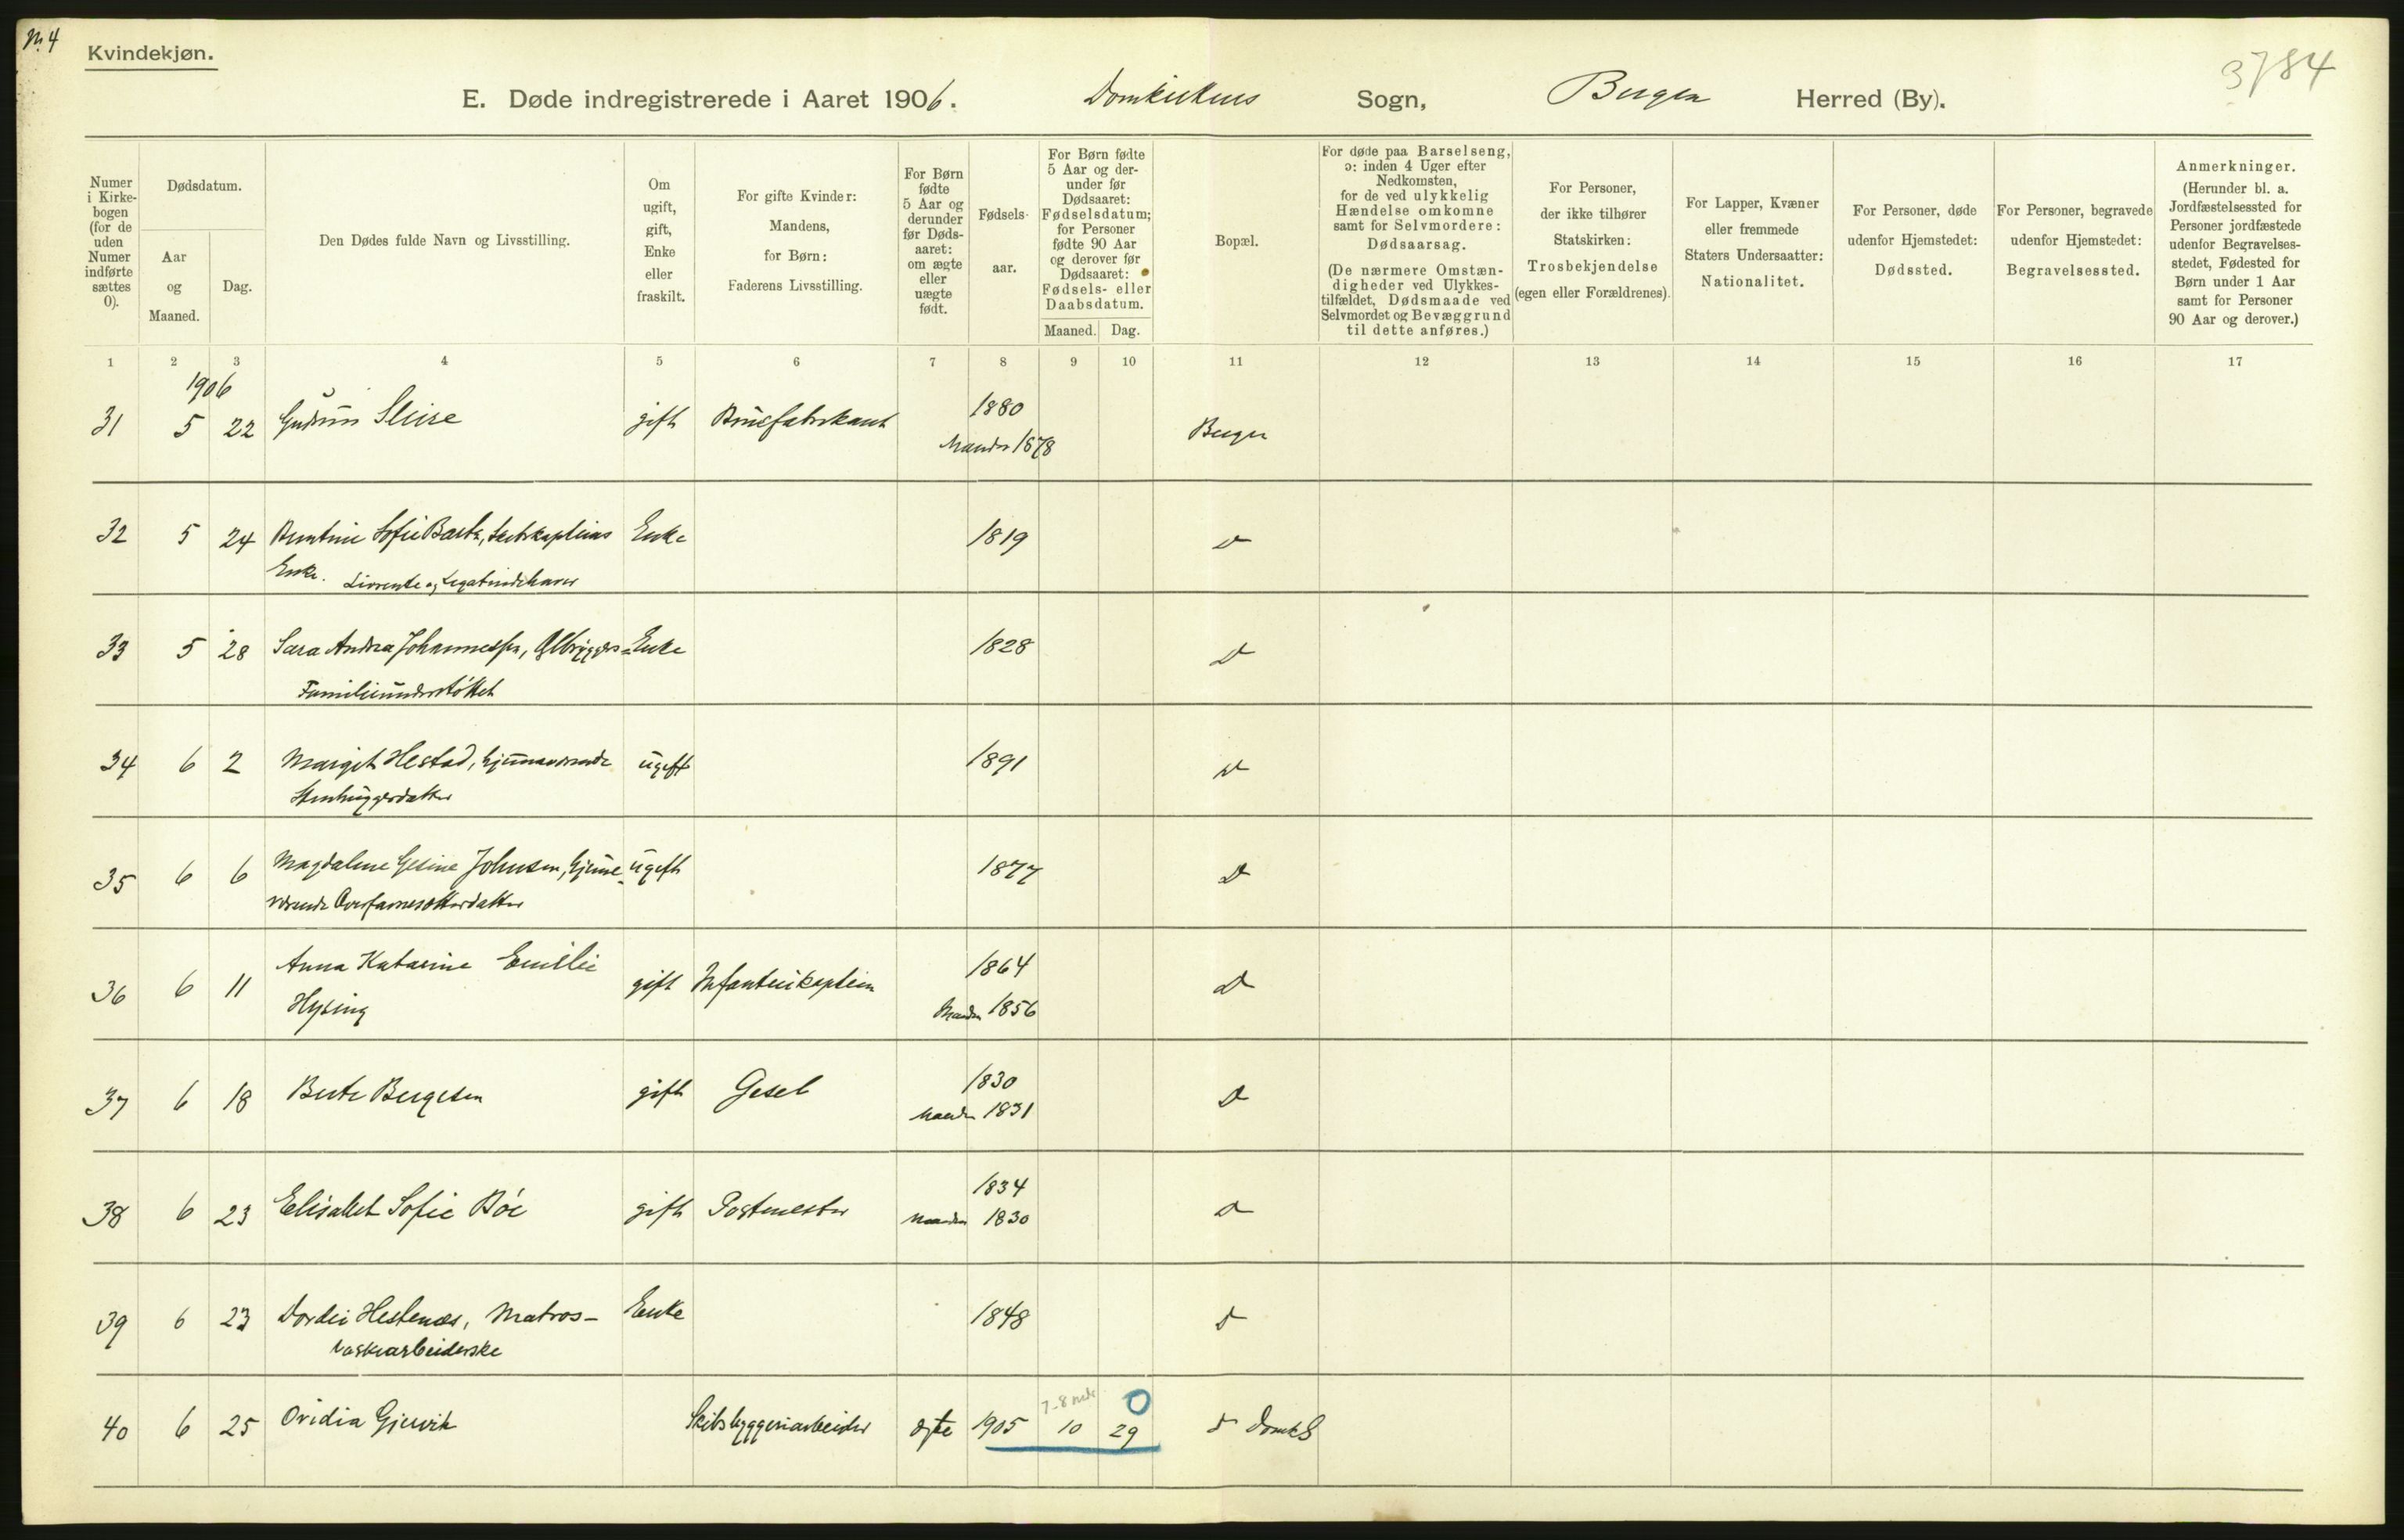 Nr. 4
Kvindekjøn.
3784
E. Døde indregistrerede i Aaret 1906. Domkirkens Sogn, Bergen Herred (By).
Numer i Kirke-bogen (for de uden Numer indførte sættes 0).
Dødsdatum.
Aar og Maaned.
Dag.
Den Dødes fulde Navn og Livsstilling.
Om ugift, gift, Enke eller fraskilt.
For gifte Kvinder: Mandens, for Børn: Faderens Livsstilling.
For Børn fødte 5 Aar og derunder før Døds-aaret: om ægte eller uægte født.
Fødsels-aar.
For Børn fødte 5 Aar og der-under før Dødsaaret: Fødselsdatum; for Personer fødte 90 Aar og derover før Dødsaaret: Fødsels- eller Daabsdatum.
Maaned. Dag.
Bopæl.
For døde paa Barselseng, ɔ: inden 4 Uger efter Nedkomsten, for de ved ulykkelig Hændelse omkomne samt for Selvmordere: Dødsaarsag.
(De nærmere Omstæn-digheder ved Ulykkes-tilfældet, Dødsmaade ved Selvmordet og Bevæggrund til dette anføres.)
For Personer, der ikke tilhører Statskirken: Trosbekjendelse (egen eller Forældrenes).
For Lapper, Kvæner eller fremmede Staters Undersaatter: Nationalitet.
For Personer, døde udenfor Hjemstedet: Dødssted.
For Personer, begravede udenfor Hjemstedet: Begravelsessted.
Anmerkninger. (Herunder bl. a. Jordfæstelsessted for Personer jordfæstede udenfor Begravelses-stedet, Fødested for Børn under 1 Aar samt for Personer 90 Aar og derover.)
1 2 3 4 5 6 7 8 9 10 11 12 13 14 15 16 17
1906
31 5 22 Gudrun gift Brusfabrikant 1880 Bergen
Manden 1878
32 5 24 Sofie Skibskapteins Enke 1819 D
Enke. Livrente og Legatindehaver
33 5 28 Sara Andrea Johannessen, Ølbryggers- Enke 1828 D
Familieunderstøttet
34 6 2 Margit Hestad, hjemmeværende ugift 1891 D
Stenhuggerdatter
35 6 6 Magdalene Gesine Johnsen, hjemme- ugift 1877 D
værende
36 6 11 Anna Katarine Emilie gift Infanterikaptein 1864 D
Hysing Manden 1856
37 6 18 Berte Bergesen gift Gesel 1830 D
Manden 1831
38 6 23 Elisabet Sofie Bøe gift Postmester 1834 D
Manden 1830
39 6 23 Dordei Hestenæs, Matros- Enke 1848 D
vaskearbeiderske
7-8 mdr. 0
40 6 25 Ovidia Gjervik Skibsbyggeriarbeider ægte 1905 10 29 D DomkS